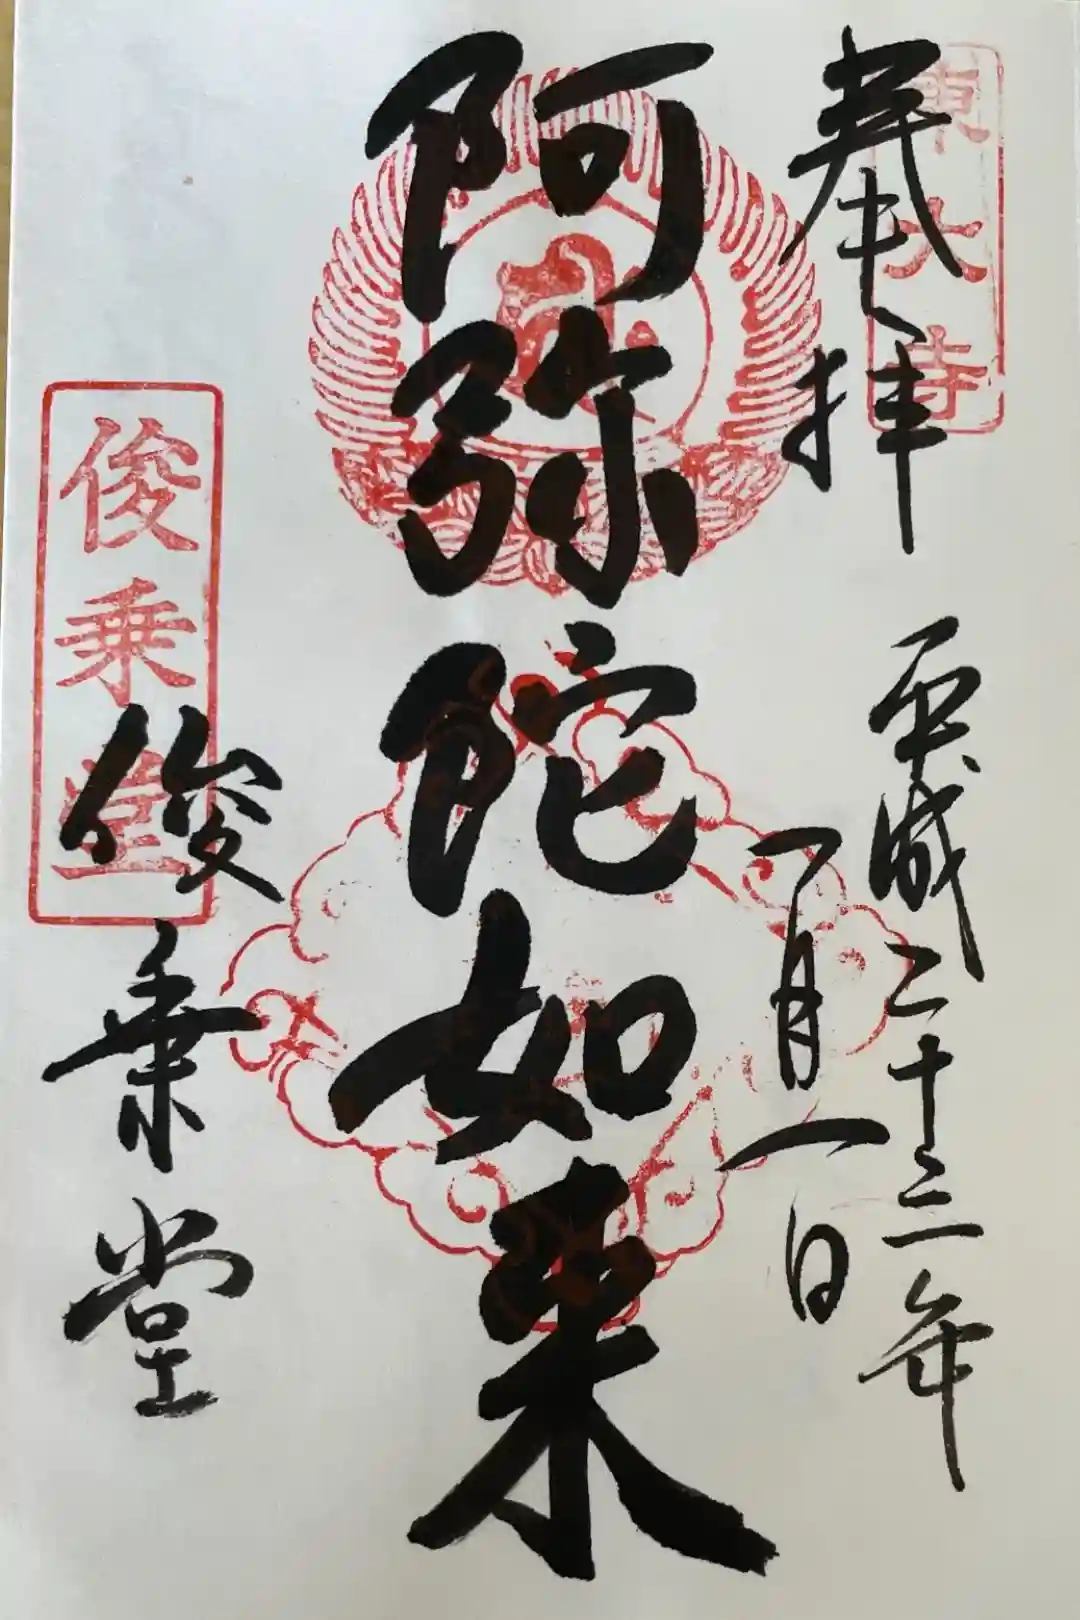 奉拝
東大寺
平成二十三年
一月一日
阿弥陀如来
俊乗堂
俊乗堂